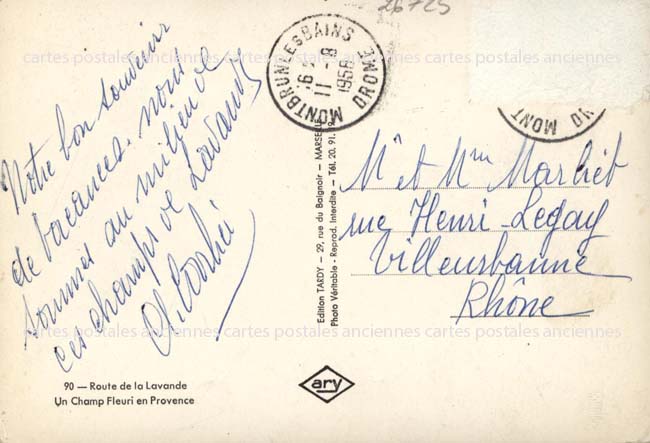 26725
MONTBRUN LES BAINS
DROME
16 H
11 - 8
1958
MONT DRO
Notre bon souvenir
de vacances. nous
sommes au milieu de
ces champs de Lavande
Mr et Mme Marliet
rue Henri-Legay
Villeurbanne
Rhône
Edition TARDY — 29, rue du Baignoir — MARSEILLE
Photo Véritable - Reprod. Interdite — Tél. 20.91.
90 — Route de la Lavande
Un Champ Fleuri en Provence
ary
cartes postales anciennes cartes postales anciennes cartes postales anciennes
cartes postales anciennes cartes postales anciennes cartes postales anciennes